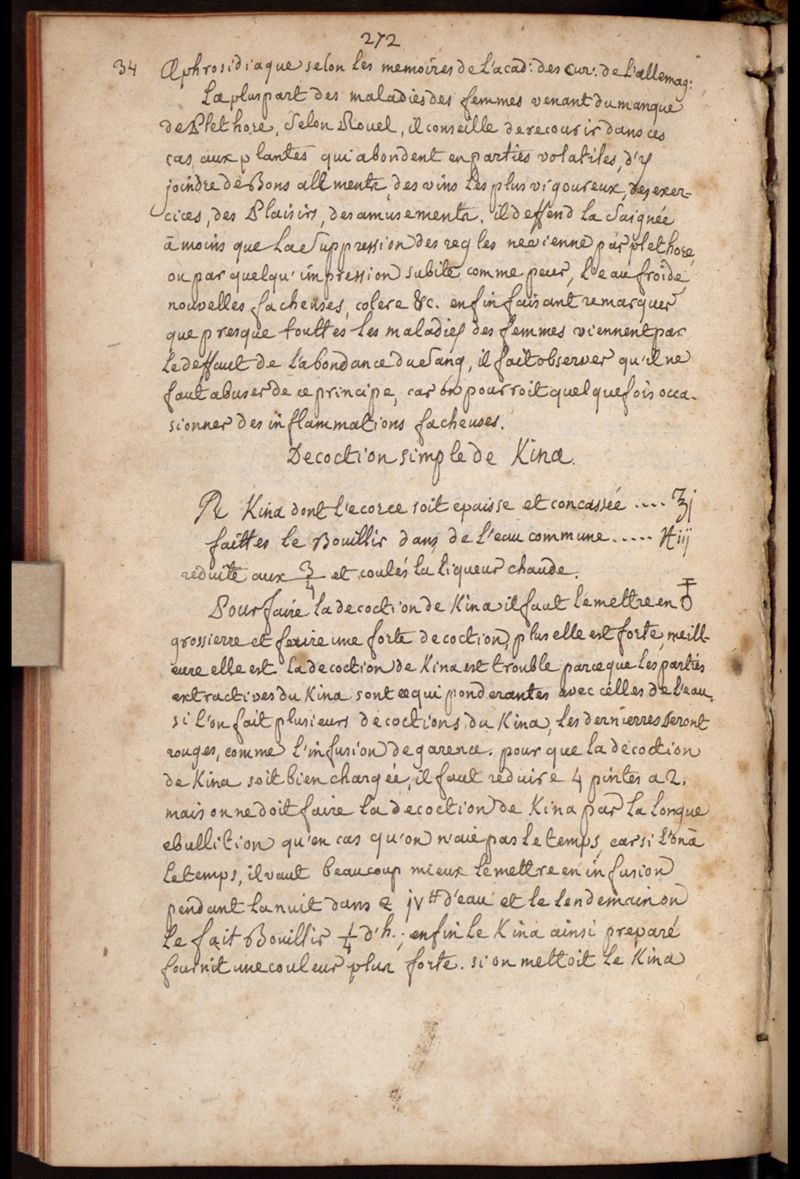 272
34 Aphrosidiaque selon les memoires de l'acad: des Cur: de l'allemag:
La pluspart des maladies des femmes venant du manque
de Plethore, selon Rouel, il conseille de recourir dans ces
cas, aux plantes qui abondent en parties volatiles, d'y
joindre de Bons aliments, des vins les plus vigoureux, des exer-
cices, des Plaisirs, des amusements. il deffend la saignée
à moins que la suppression des regles ne vienne par plethore,
ou par quelqu'impression subite comme peur, l'eau froide
nouvelles facheuses, colere &c. enfin faisant remarquer
que presque touttes les maladies des femmes viennent par
le deffaut de l'abondance du sang, il fait observer qu'il ne
faut abuser de ce principe, car on pourroit quelquefois occa-
sionner des inflammations facheuses.
Decoction simple de Kina.
℞ Kina dont l'ecorce soit epaisse et concassée .... ℥j
faittes le Bouillir dans de l'eau commune ..... ℔iij
reduite aux 3/4 et coulés la liqueur chaude.
Pour faire la decoction de Kina il faut le mettre en
grossierre et faire une forte decoction, plus elle est forte, meill-
eure elle est. La decoction de Kina est trouble parce que les parties
extractives du Kina sont æquiponderantes avec celles de l'eau.
si l'on fait plusieurs decoctions du Kina, les dernierres seront
rouges, comme l'infusion de garence. pour que la decoction
de Kina soit bien chargée, il faut reduire 4 pintes a 2.
mais on ne doit faire la decoction de Kina par la longue
ebullition qu'en cas qu'on n'aie pas le temps, car si l'on a
le temps, il vaut beaucoup mieux le mettre en infusion
pendant la nuit dans jv ℔ d'eau et le lendemain on
le fait Bouillir 1/4 d'h.; enfin le Kina ainsi preparé
fournit une couleur plus forte. si on mettoit le Kina